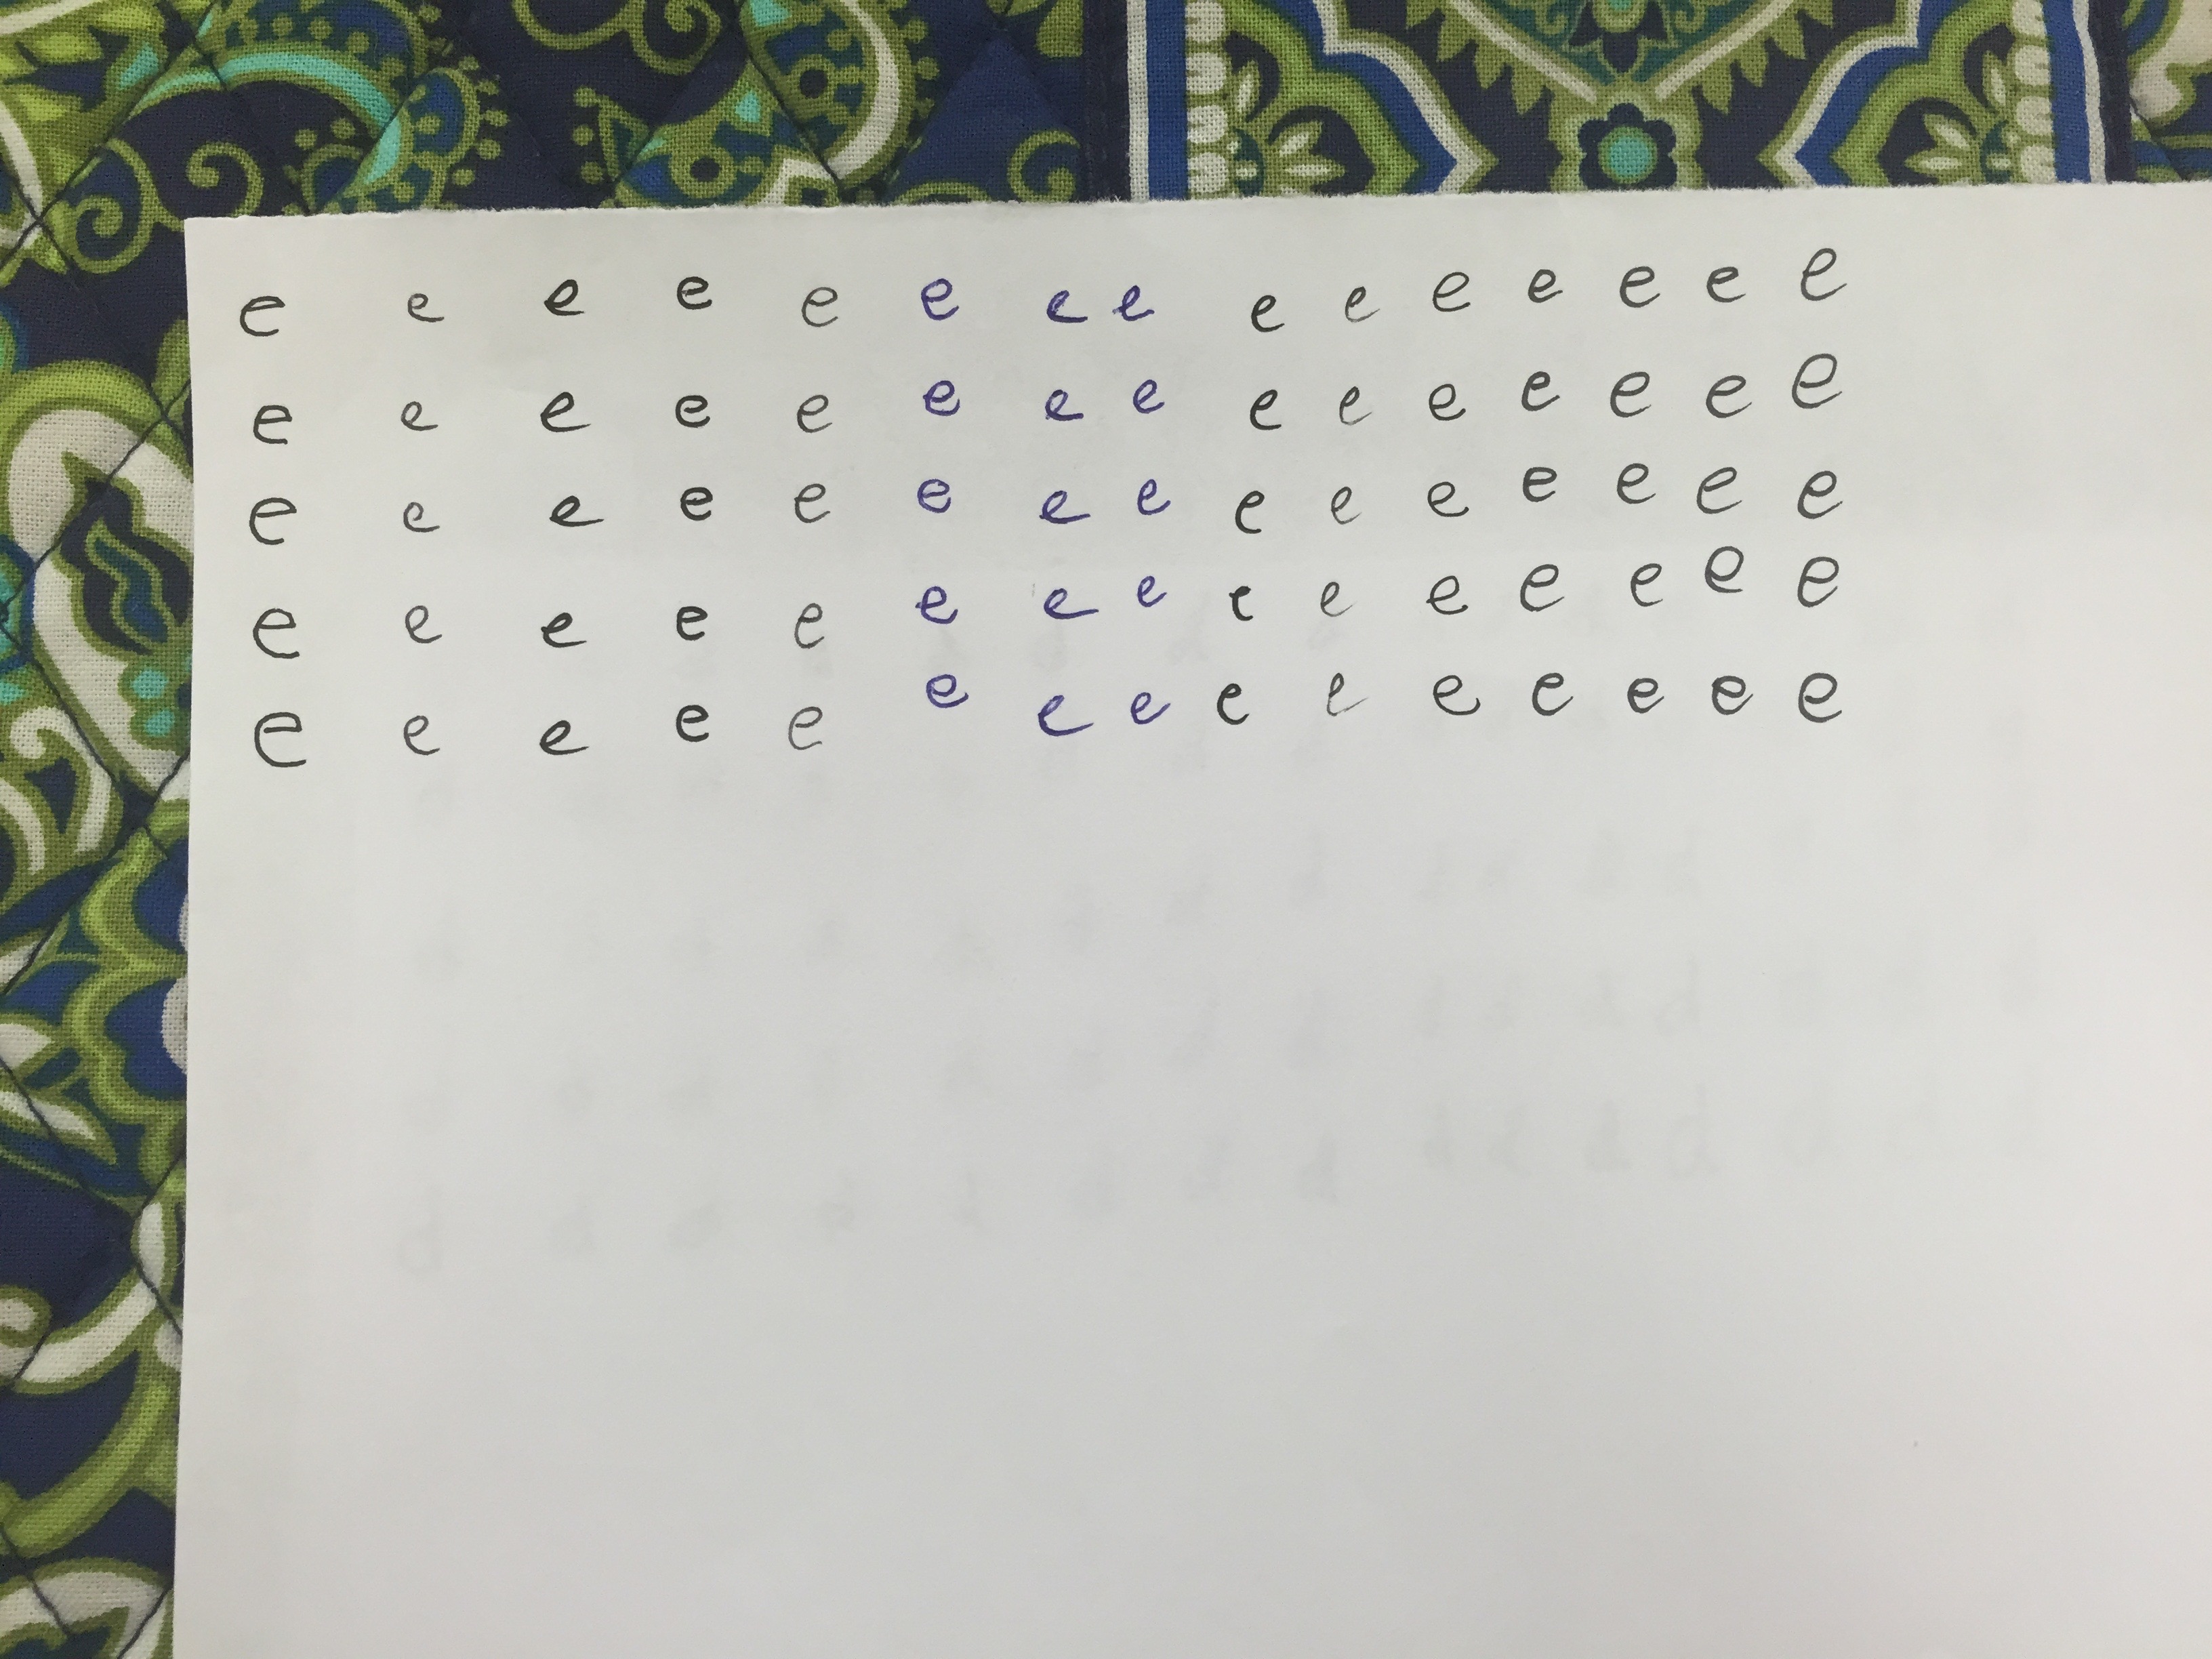 e e e e e e e e e e e e e e e
e e e e e e e e e e e e e e e
e e e e e e e e e e e e e e e
e e e e e e e e e e e e e e e
e e e e e e e e e e e e e e e